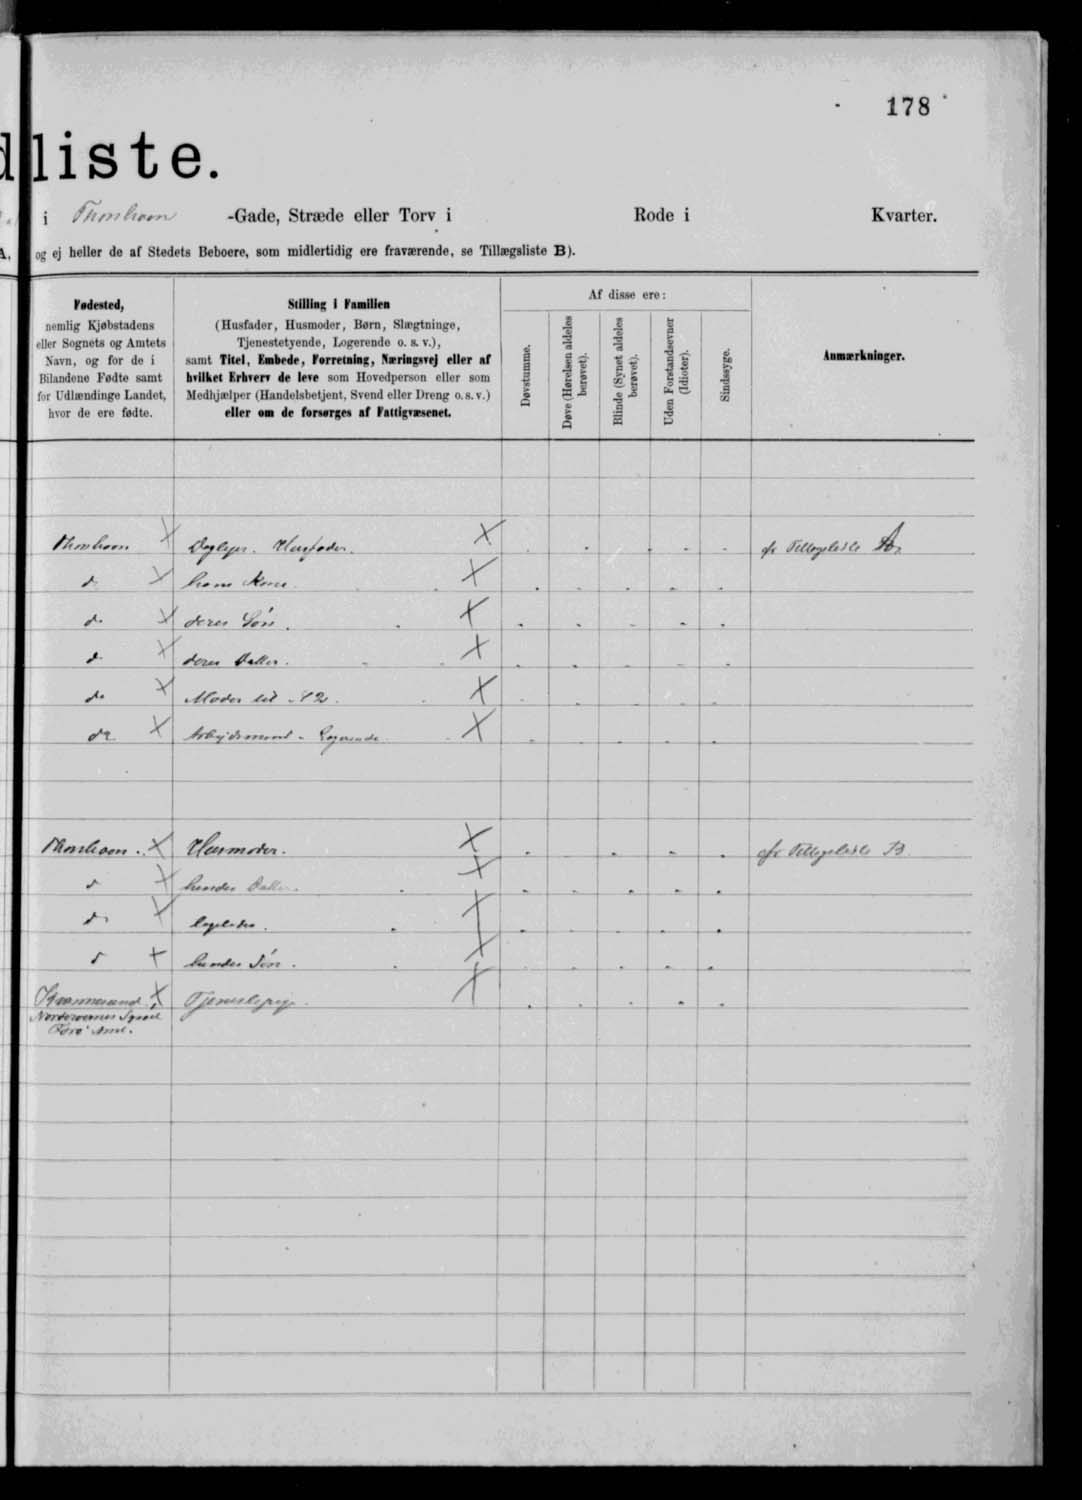 178
dliste.
i Thorshavn -Gade, Stræde eller Torv i Rode i Kvarter.
A, og ej heller de af Stedets Beboere, som midlertidig ere fraværende, se Tillægsliste B).
Fødested,
nemlig Kjøbstadens
eller Sognets og Amtets
Navn, og for de i
Bilandene Fødte samt
for Udlændinge Landet,
hvor de ere fødte.
Stilling i Familien
(Husfader, Husmoder, Børn, Slægtninge,
Tjenestetyende, Logerende o. s. v.),
samt Titel, Embede, Forretning, Næringsvej eller af
hvilket Erhverv de leve som Hovedperson eller som
Medhjælper (Handelsbetjent, Svend eller Dreng o. s. v.)
eller om de forsørges af Fattigvæsenet.
Af disse ere:
Døvstumme.
Døve (Hørelsen aldeles
berøvet).
Blinde (Synet aldeles
berøvet).
Uden Forstandsevner
(Idioter).
Sindssyge.
Anmærkninger.
Thorshavn Daglejer. Husfader. cfr Tillægsliste A.
do hans Kone.
do deres Søn.
do deres Datter.
do Moder til No 2.
do Arbejdsmand - Logerende
Thorshavn. Husmoder. cfr Tillægsliste B.
do hendes Datter.
do ligeledes.
do hendes Søn.
Tjenestepige.
Norderøernes Syssel
Færø Amt.